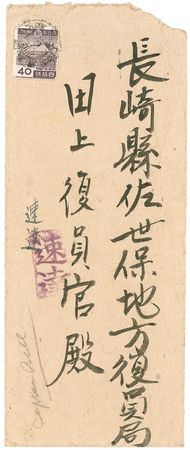 長崎縣佐世保地方復員局
田上復員官殿
速達
速達
40